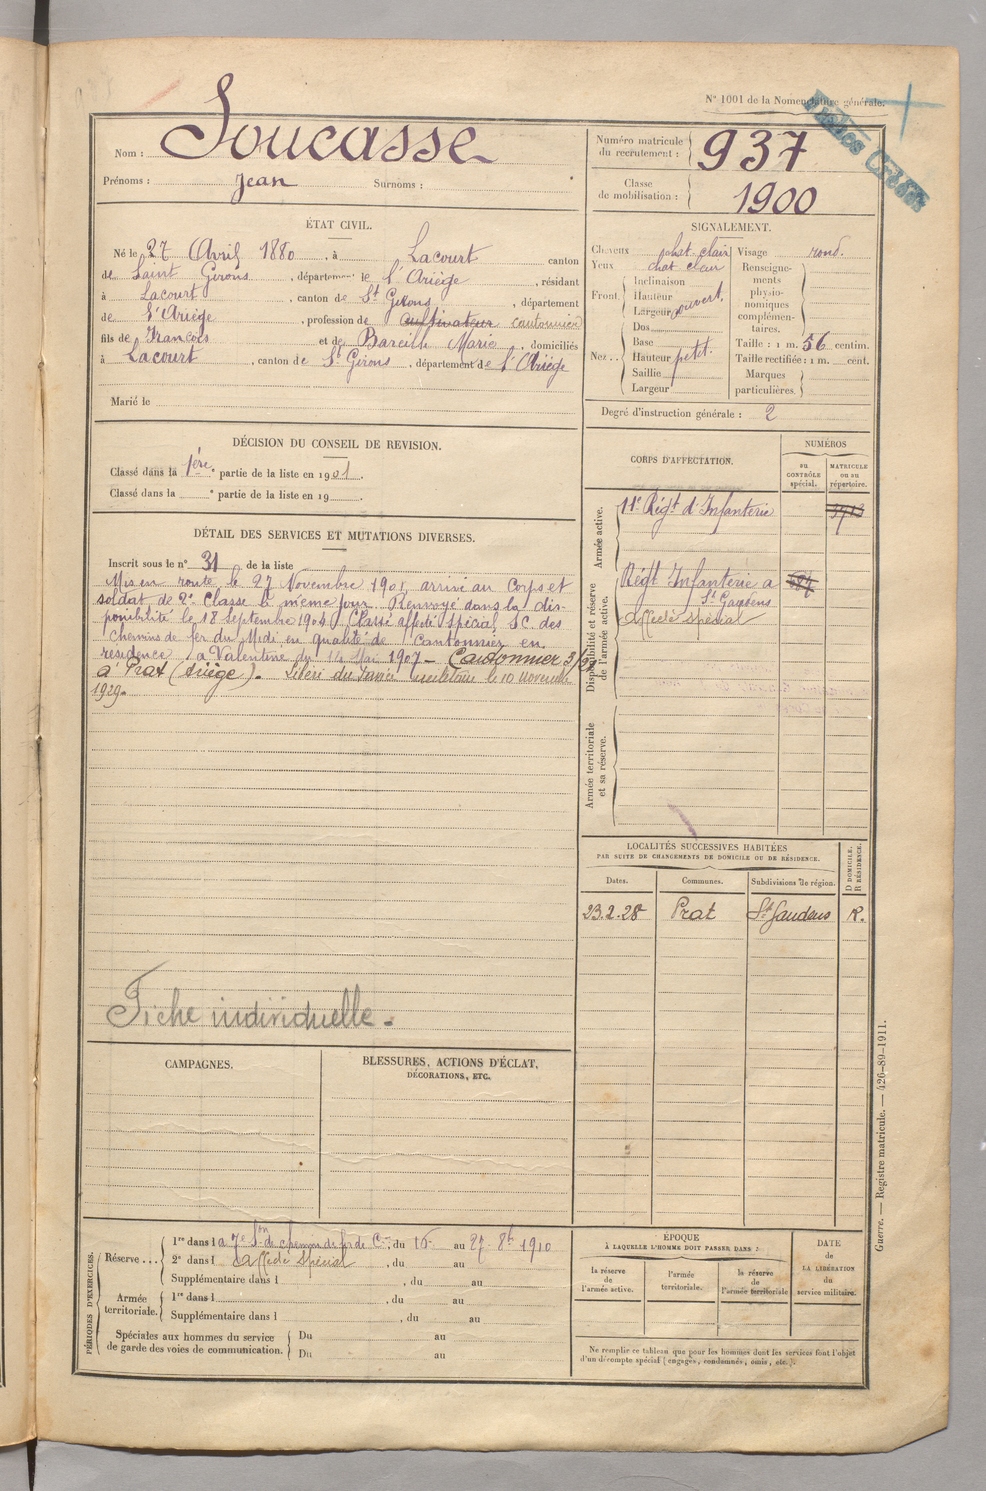 N° 1001 de la Nomenclature générale.
Nom : Soucasse
Prénoms : Jean Surnoms :
Numéro matricule du recrutement : 937
Classe de mobilisation : 1900
ÉTAT CIVIL.
Né le 27 Avril 1880, à Lacourt canton
de Saint Girons, département de l'Ariège, résidant
à Lacourt, canton de St Girons, département
de l'Ariège, profession de cultivateur cantonnier
fils de François et de Bareille Marie, domiciliés
à Lacourt, canton de St Girons, département de l'Ariège
Marié le
SIGNALEMENT.
Cheveux chat. clair
Yeux chat clair
Front.
Inclinaison
Hauteur
Largeur
couvert.
Nez..
Dos
Base
Hauteur petit.
Saillie
Largeur
Visage rond.
Renseignements physionomiques complémentaires.
Taille : 1 m. 56 centim.
Taille rectifiée : 1 m. cent.
Marques particulières.
Degré d'instruction générale : 2
DÉCISION DU CONSEIL DE REVISION.
Classé dans la 1ère partie de la liste en 1901.
Classé dans la e partie de la liste en 19 .
DÉTAIL DES SERVICES ET MUTATIONS DIVERSES.
Inscrit sous le n° 31 de la liste
Mis en route le 27 Novembre 1901, arrivé au Corps et
soldat de 2e Classe le même jour. Renvoyé dans la dis-
ponibilité le 18 Septembre 1904. Classé affecté spécial S.C. des
Chemins de fer du Midi en qualité de Cantonnier en
résidence à Valentine du 14 Mai 1907 - Cantonnier
à Prat (Ariège). Libéré du service militaire le 10 novembre
1929.
Fiche individuelle.
CORPS D'AFFECTATION.
NUMÉROS
au contrôle spécial.
matricule ou au répertoire.
Armée active.
11e Régt d'Infanterie
Disponibilité et réserve de l'armée active.
Régt Infanterie a
St Gaudens
Affecté spécial
Armée territoriale et sa réserve.
LOCALITÉS SUCCESSIVES HABITÉES
PAR SUITE DE CHANGEMENTS DE DOMICILE OU DE RÉSIDENCE.
Dates. Communes. Subdivisions de région. D DOMICILE. R RÉSIDENCE.
23.2.28 Prat St Gaudens R.
CAMPAGNES.
BLESSURES, ACTIONS D'ÉCLAT,
DÉCORATIONS, ETC.
PÉRIODES D'EXERCICES.
Réserve...
1re dans l a 7e Son de chemins de fer de C. du 15 au 27 8b 1910
2e dans l Affecté spécial, du au
Supplémentaire dans l , du au
Armée territoriale.
1re dans l , du au
Supplémentaire dans l , du au
Spéciales aux hommes du service
de garde des voies de communication.
Du au
Du au
ÉPOQUE
À LAQUELLE L'HOMME DOIT PASSER DANS :
la réserve de l'armée active.
l'armée territoriale.
la réserve de l'armée territoriale
DATE de LA LIBÉRATION du service militaire.
Ne remplir ce tableau que pour les hommes dont les services font l'objet
d'un décompte spécial (engagés, condamnés, omis, etc.).
Guerre. — Registre matricule. — 426-89-1911.